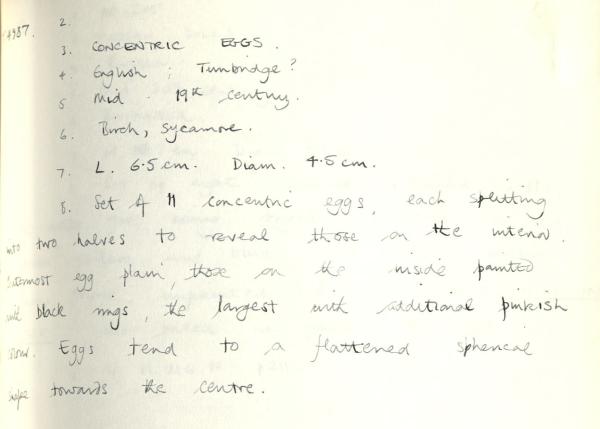 4987. 2.
3. CONCENTRIC EGGS.
4. English ; Tunbridge?
5 Mid - 19th century.
6. Birch, sycamore.
7. L. 6.5 cm. Diam. 4.5 cm.
8. Set of 11 concentric eggs, each splitting
into two halves to reveal those on the interior.
Outermost egg plain, those on the inside painted
with black rings, the largest with additional pinkish
colour. Eggs tend to a flattened spherical
shape towards the centre.